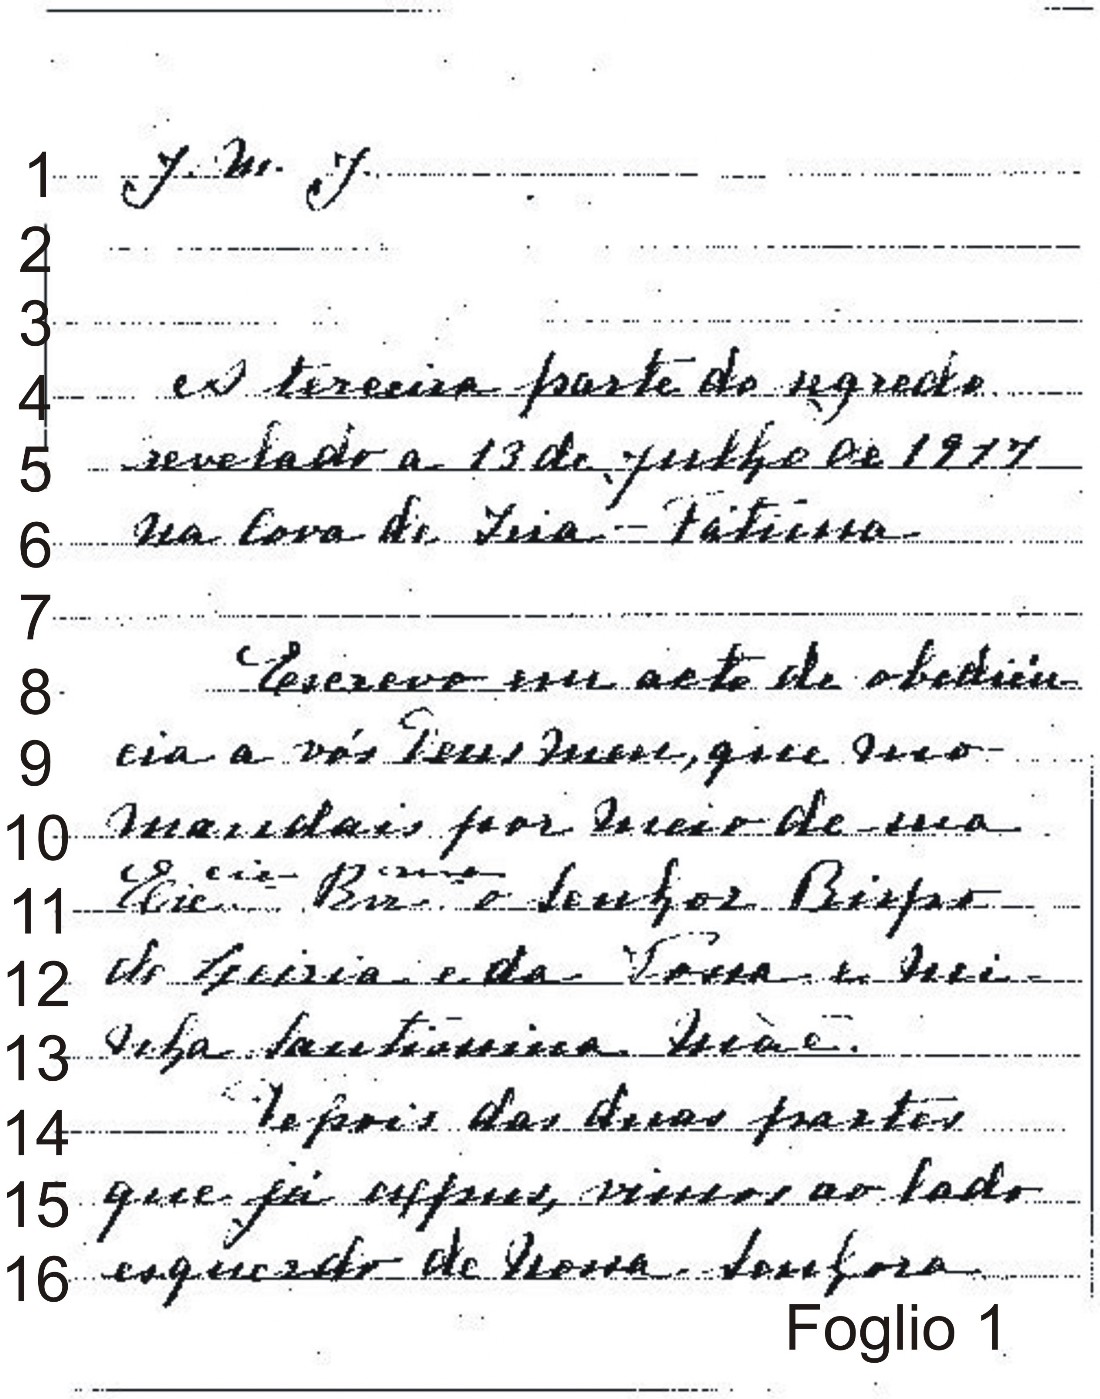 1 J. M. J.
2
3
4 A terceira parte do segredo
5 revelado a 13 de julho de 1917
6 na Cova de Iria – Fátima
7
8 Escrevo em acto de obediên
9 cia a vós Deus meu, que mo
10 mandais por meio de sua
11 Ex.cia Rev.ma o Senhor Bispo
12 de Leiria e da Vossa e mi-
13 nha Santíssima Mãe.
14 Depois das duas partes
15 que já expus, vimos ao lado
16 esquerdo de Nossa Senhora
Foglio 1